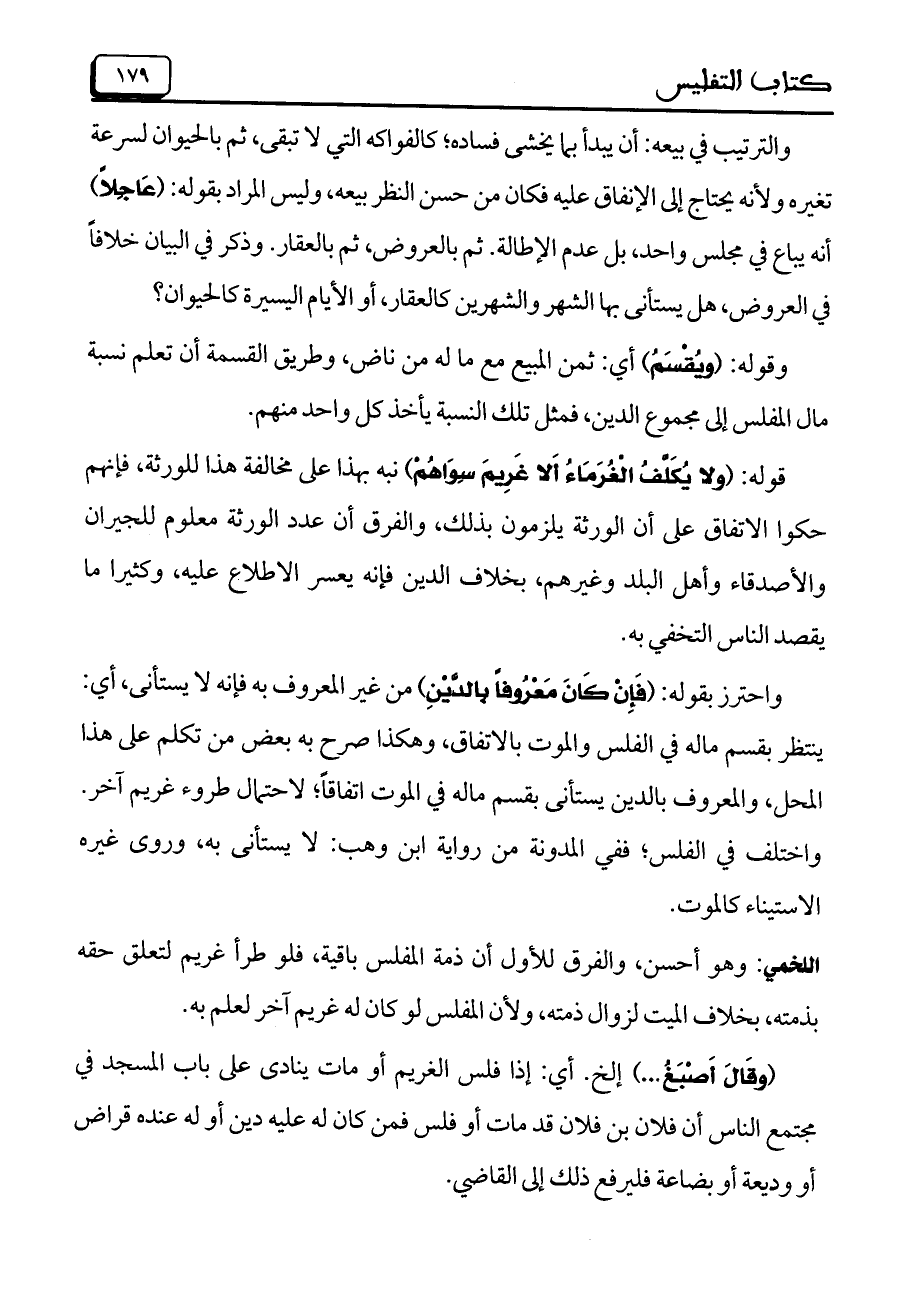 كتاب التفليس
١٧٩
والترتيب في بيعه: أن يبدأ بما يخشى فساده؛ كالفواكه التي لا تبقى، ثم بالحيوان لسرعة
تغيره ولأنه يحتاج إلى الإنفاق عليه فكان من حسن النظر بيعه، وليس المراد بقوله: (عَاجِلاً)
أنه يباع في مجلس واحد، بل عدم الإطالة. ثم بالعروض، ثم بالعقار. وذكر في البيان خلافاً
في العروض، هل يستأنى بها الشهر والشهرين كالعقار، أو الأيام اليسيرة كالحيوان؟
وقوله: (ويُقْسَمُ) أي: ثمن المبيع مع ما له من ناض، وطريق القسمة أن تعلم نسبة
مال المفلس إلى مجموع الدين، فمثل تلك النسبة يأخذ كل واحد منهم.
قوله: (ولا يُكَلَّفُ الْغُرَمَاءُ اَلا غَرِيمَ سِوَاهُمْ) نبه بهذا على مخالفة هذا للورثة، فإنهم
حكوا الاتفاق على أن الورثة يلزمون بذلك، والفرق أن عدد الورثة معلوم للجيران
والأصدقاء وأهل البلد وغيرهم، بخلاف الدين فإنه يعسر الاطلاع عليه، وكثيرا ما
يقصد الناس التخفي به.
واحترز بقوله: (فَإِنْ كَانَ مَعْرُوفاً بِالدَّيْنِ) من غير المعروف به فإنه لا يستأنى، أي:
ينتظر بقسم ماله في الفلس والموت بالاتفاق، وهكذا صرح به بعض من تكلم على هذا
المحل، والمعروف بالدين يستأنى بقسم ماله في الموت اتفاقاً؛ لاحتمال طروء غريم آخر.
واختلف في الفلس؛ ففي المدونة من رواية ابن وهب: لا يستأنى به، وروى غيره
الاستيناء كالموت.
اللخمي: وهو أحسن، والفرق للأول أن ذمة المفلس باقية، فلو طرأ غريم لتعلق حقه
بذمته، بخلاف الميت لزوال ذمته، ولأن المفلس لو كان له غريم آخر لعلم به.
(وقَالَ اَصْبَغُ...) إلخ. أي: إذا فلس الغريم أو مات ينادى على باب المسجد في
مجتمع الناس أن فلان بن فلان قد مات أو فلس فمن كان له عليه دين أو له عنده قراض
أو وديعة أو بضاعة فليرفع ذلك إلى القاضي.